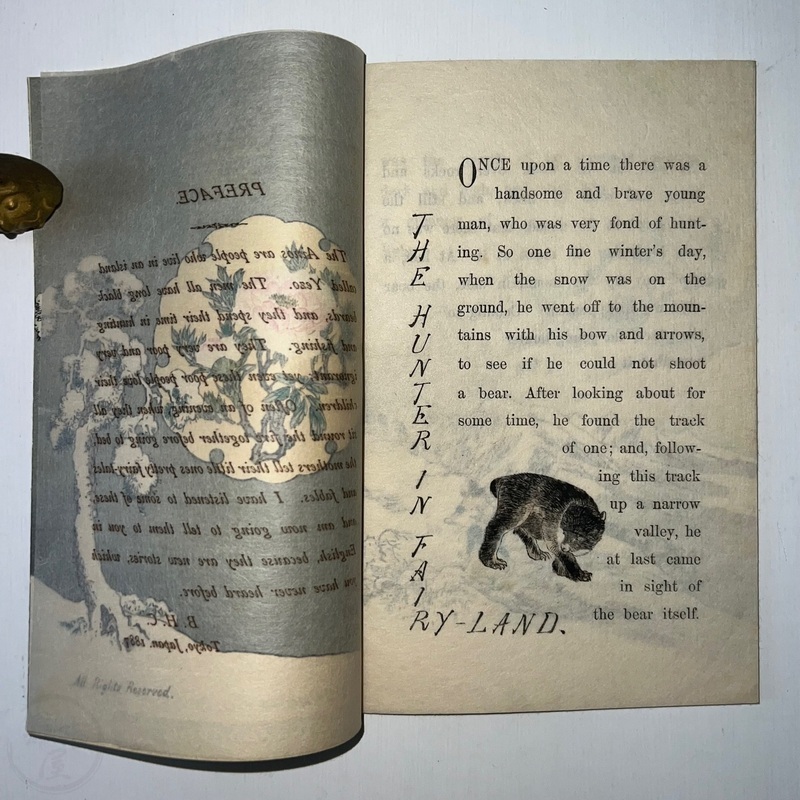 PREFACE.
The Ainos are people who live in an island
called Yezo. The men all have long black
beards, and they spend their time in hunting
and fishing. They are very poor and very
ignorant; yet even these poor people love their
children. Often of an evening, when they all
sit round the fire together before going to bed,
the mothers tell their little ones pretty fairy-tales
and fables. I have listened to some of these,
and am now going to tell them to you in
English, because they are new stories, which
you have never heard before.
B. H. C.
Tokyo, Japan. 1887
All Rights Reserved.
THE HUNTER IN FAIRY-LAND.
ONCE upon a time there was a
handsome and brave young
man, who was very fond of hunt-
ing. So one fine winter's day,
when the snow was on the
ground, he went off to the moun-
tains with his bow and arrows,
to see if he could not shoot
a bear. After looking about for
some time, he found the track
of one; and, follow-
ing this track
up a narrow
valley, he
at last came
in sight of
the bear itself.